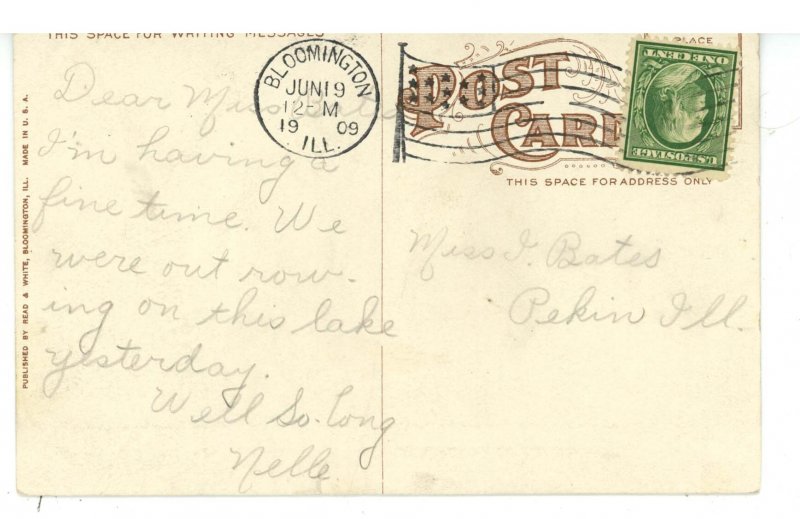 THIS SPACE FOR WRITING MESSAGES
Dear Miss Bates
I'm having a
fine time. We
were out row-
ing on this lake
yesterday.
Well So-long
Nelle.
PUBLISHED BY READ & WHITE, BLOOMINGTON, ILL. MADE IN U. S. A.
BLOOMINGTON
JUN 19
12-M
19 09
ILL.
POST
CARD
PLACE
U.S. POSTAGE
ONE CENT
THIS SPACE FOR ADDRESS ONLY
Miss I. Bates
Pekin Ill.